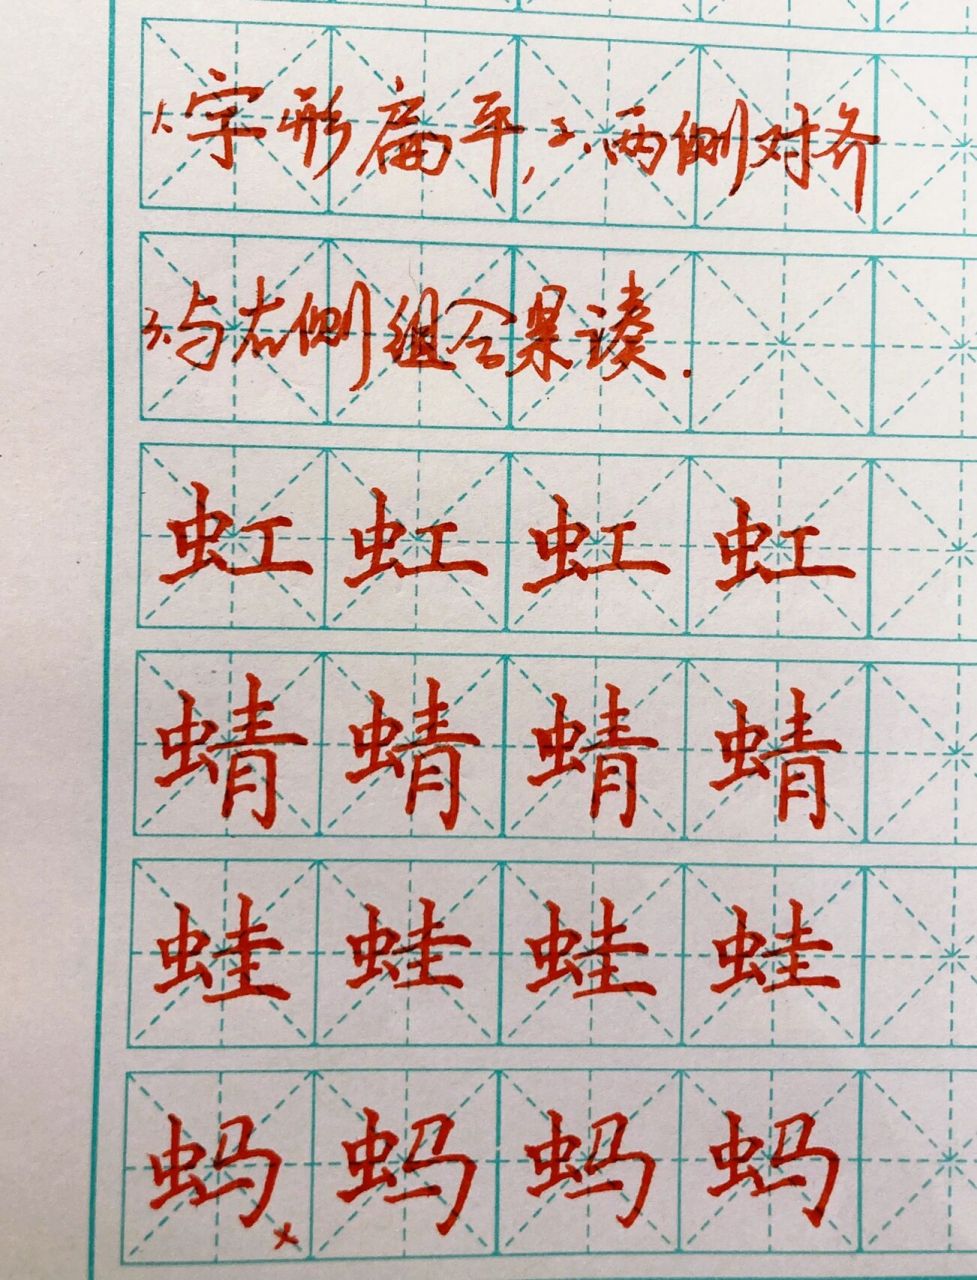 1.字形扁平,2.两侧对齐
3.与右侧组合紧凑.
虹虹虹虹
蜻蜻蜻蜻
蛙蛙蛙蛙
蚂蚂蚂蚂
×